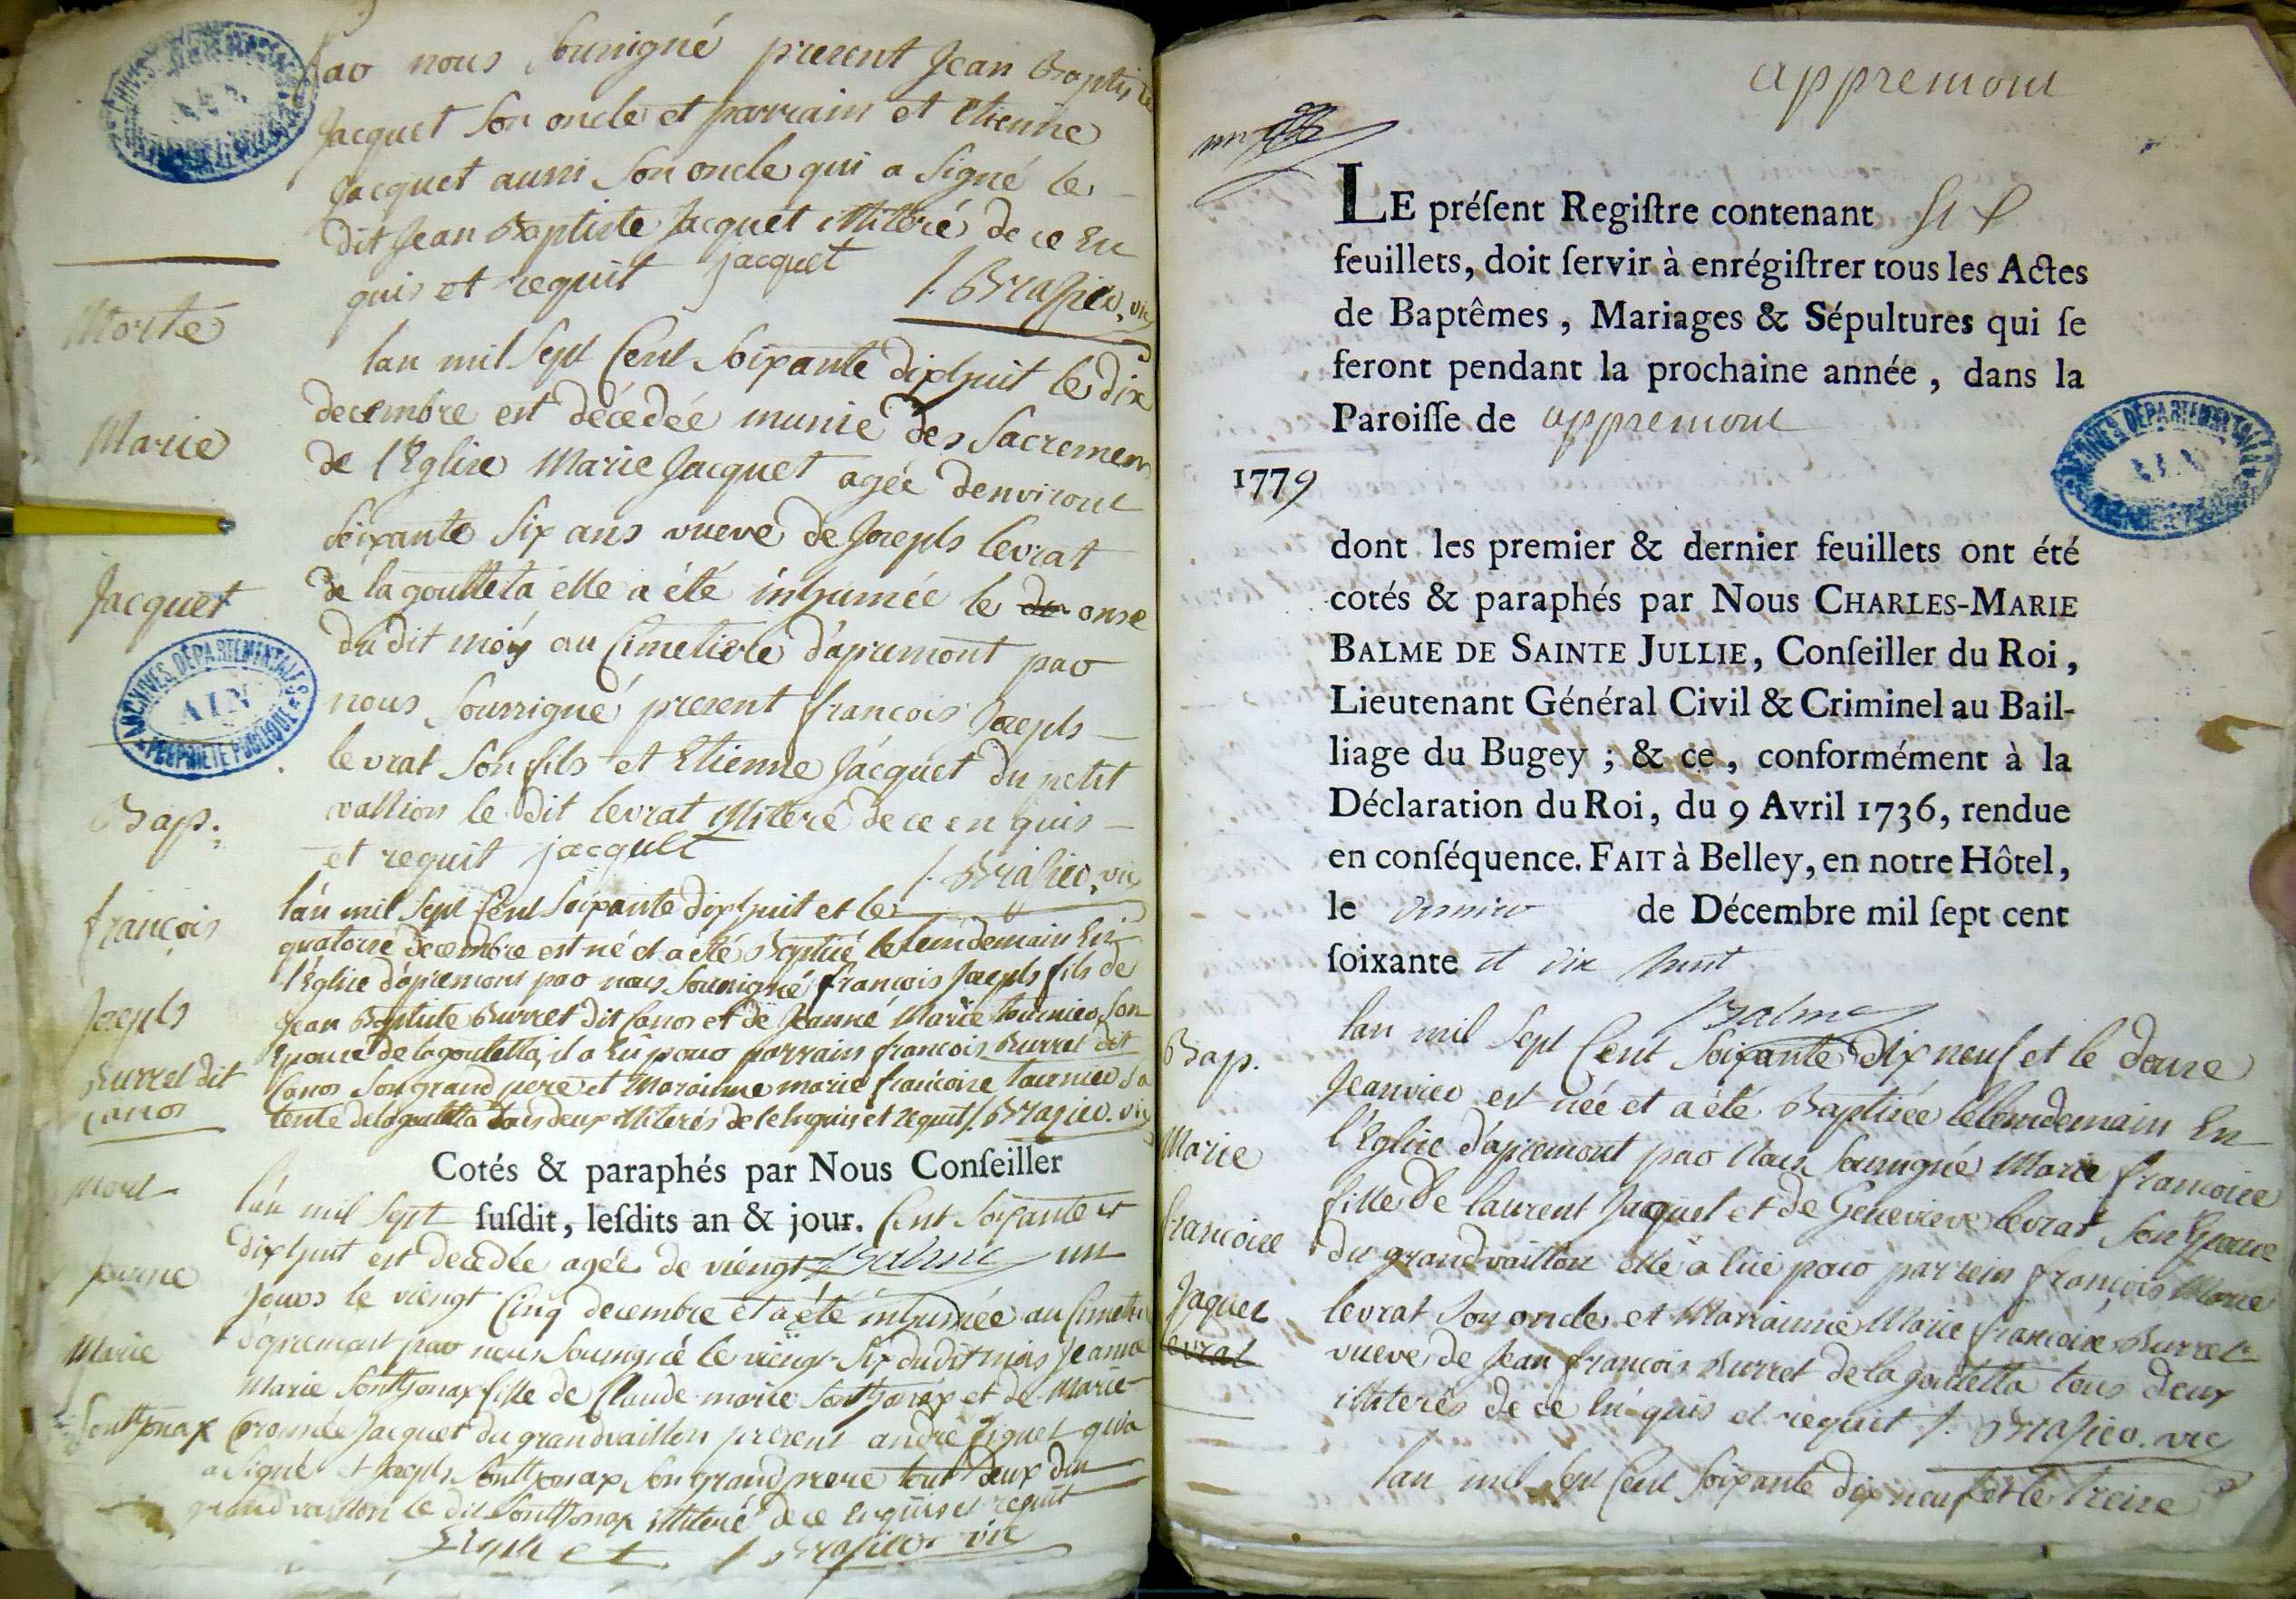 par nous soussigné present Jean Baptiste
Jacquet son oncle et parrain et Etienne
Jacquet aussi son oncle qui a signé le
dit Jean Baptiste Jacquet illiteré de ce En
quis et requit jacquet /. Brasier. vic
Morte
Marie
Jacquet
lan mil sept Cent soixante dixhuit le dix
decembre est décedée munie des Sacremens
de l'Eglise Marie Jacquet agée denviront
soixante six ans vueve de Joseph levrat
de la goutteta elle a été inhumée le onse
du dit moiy au Cimetiere d'apremont par
nous soussigné present francois Joseph
levrat son fils et Etienne Jacquet du petit
vallion le dit levrat illiteré de ce en quis
et requit jacquet /. Brasier. vic
ARCHIVES DÉPARTEMENTALES
AIN
PROPRIÉTÉ PUBLIQUE
Bap.
françois
Joseph
Burret dit
canos
l'an mil sept Cent soixante dixhuit et le
quatorse decembre est né et a été Baptisé le lemdemain En
l'Eglise d'apremont par nous soussigné françois Joseph fils de
Jean Baptiste Burret dit Canos et de Jeanne Marie tournier son
Epouse de la goutetta, il a Eu pour parrain francois Burret dit
Canos son grand pere et Maraine marie françoise tournier sa
tente de la goutetta tous deux illiterés de ce Enquis et requit /. Brasier. vic
Cotés & paraphés par Nous Conseiller
susdit, lesdits an & jour.
mort
Jeanne
Marie
Sonthonax
l'an mil sept Cent soixante et
dixhuit est decedée agée de viengt Balme un
Jours le viengt Cinq decembre et a été inhumée au Cimetie
d'apremont par nous soussigné le viengt six du dit mois Jeanne
Marie Sonthonax fille de Claude marie Sonthonax et de Marie
Jacquet du grandvaillon present andré qui a
a signé et Joseph Sonthonax son grand pere tout deux du
grand vaillon le dit Sonthonax illiteré de ce Enquis et requit
/. Brasier vic
appremont
LE présent Registre contenant six
feuillets, doit servir à enrégistrer tous les Actes
de Baptêmes, Mariages & Sépultures qui se
feront pendant la prochaine année, dans la
Paroisse de appremont
1779
ARCHIVES DÉPARTEMENTALES
AIN
dont les premier & dernier feuillets ont été
cotés & paraphés par Nous CHARLES-MARIE
BALME DE SAINTE JULLIE, Conseiller du Roi,
Lieutenant Général Civil & Criminel au Bail-
liage du Bugey ; & ce, conformément à la
Déclaration du Roi, du 9 Avril 1736, rendue
en conséquence. FAIT à Belley, en notre Hôtel,
le de Décembre mil sept cent
soixante et dix huit
Balme
Bap.
Marie
francoise
Jaquet
levrat
lan mil sept Cent soixante dix neuf et le douse
Jeanvier est née et a été Baptisée le lemdemain En
l'Eglise d'apremont par Nous soussigné Marie francoise
fille de laurent Jaquet et de Genevieve levrat son Epouse
du grandvaillon elle a Eüe pour parrein françois Marie
levrat son oncle et Marrainne Marie francoise Burret
vueve de Jean francois Burret de la goutetta tous deux
illiterés de ce En quis et requit /. Brasier. vic
lan mil sept Cent soixante dix neuf et le treise